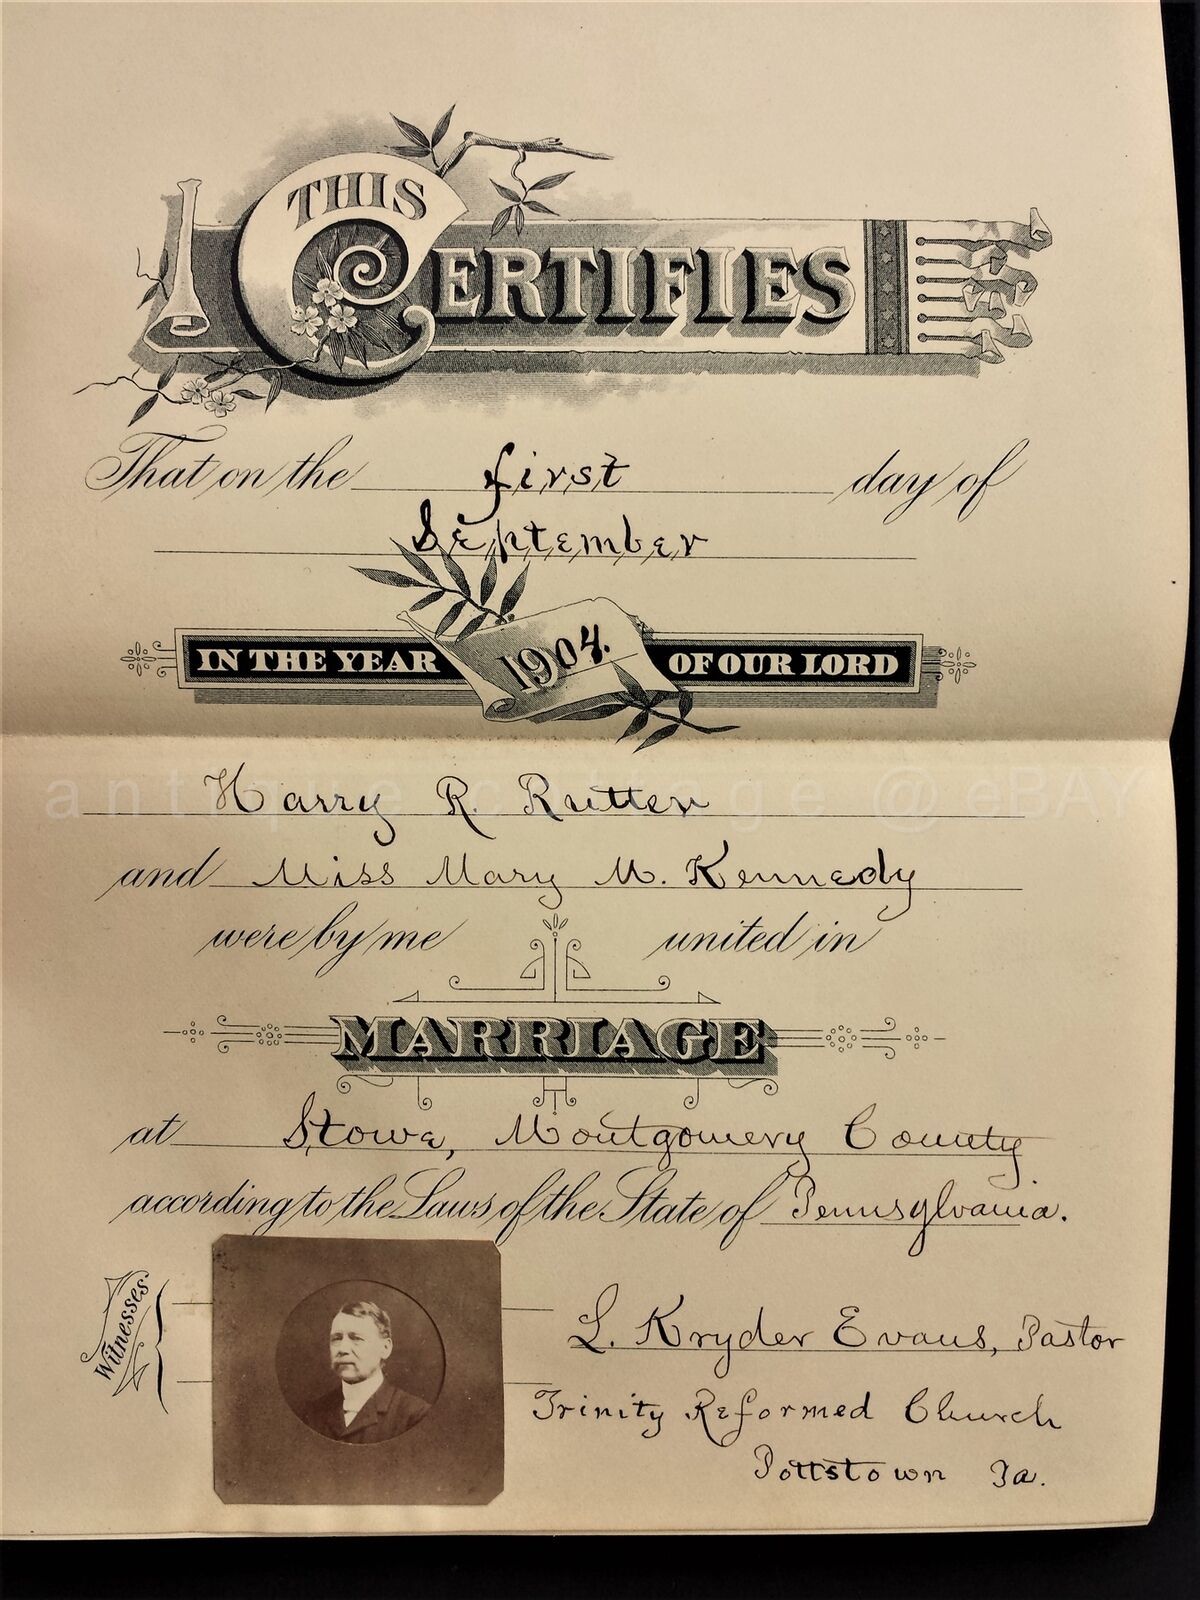 THIS CERTIFIES
That on the first day of
September
IN THE YEAR 1904. OF OUR LORD
Harry R. Rutter
and Miss Mary M. Kennedy
were by me united in
MARRIAGE
at Stowe, Montgomery County
according to the Laws of the State of Pennsylvania.
Witnesses
L. Kryder Evans, Pastor
Trinity Reformed Church
Pottstown Pa.